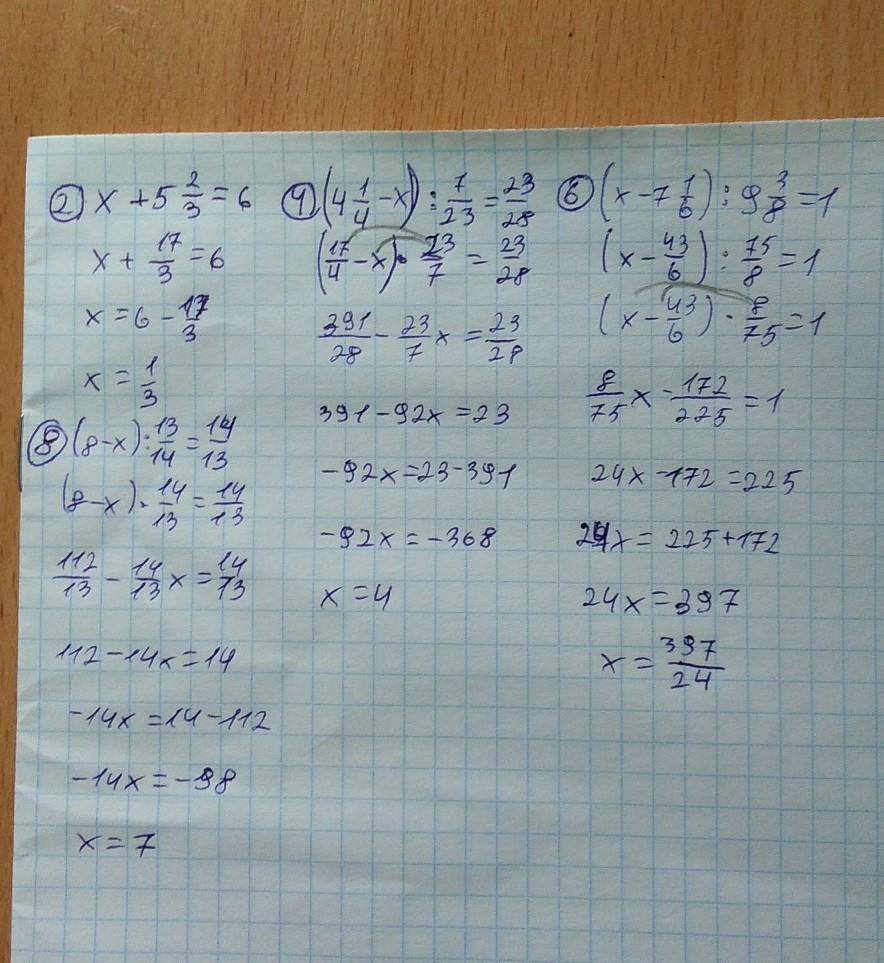 ② x + 5 2/3 = 6
x + 17/3 = 6
x = 6 - 17/3
x = 1/3
⑧ (8-x) : 13/14 = 14/13
(8-x) · 14/13 = 14/13
112/13 - 14/13 x = 14/13
112-14x=14
-14x=14-112
-14x=-98
x=7
④ (4 1/4 - x) : 7/23 = 23/28
(17/4 - x) · 23/7 = 23/28
391/28 - 23/7 x = 23/28
391-92x=23
-92x=23-391
-92x=-368
x=4
⑥ (x-7 1/6) : 9 3/8 = 1
(x - 43/6) : 75/8 = 1
(x - 43/6) · 8/75 = 1
8/75 x - 172/225 = 1
24x-172=225
24x=225+172
24x=397
x = 397/24